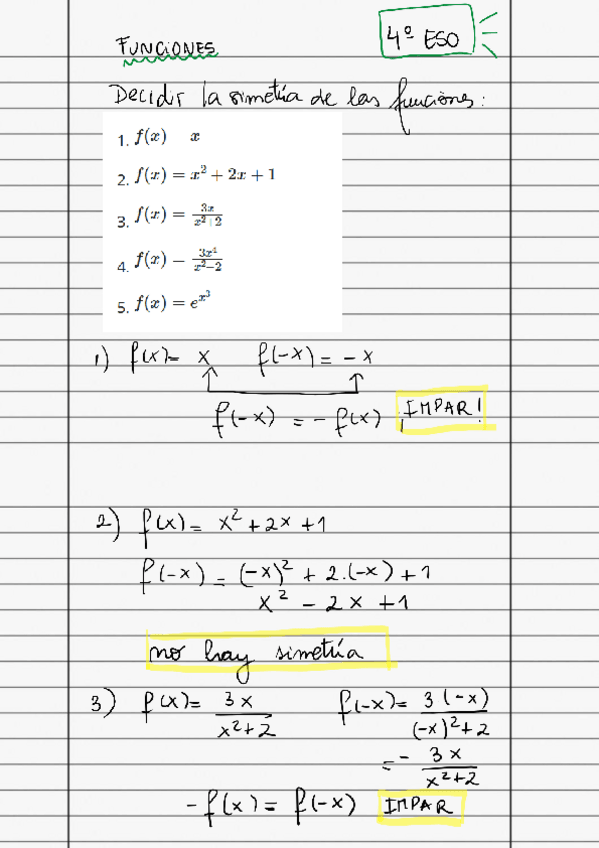 FUNCIONES
4º ESO
Decidir la simetría de las funciones:
1. f(x) x
2. f(x) = x² + 2x + 1
3. f(x) = 3x / x²+2
4. f(x) − 3x⁴ / x²−2
5. f(x) = e^x³
1) f(x)= x f(-x) = -x
f(-x) = - f(x) ¡IMPAR!
2) f(x) = x² + 2x + 1
f(-x) = (-x)² + 2.(-x) + 1
x² - 2x + 1
no hay simetría
3) f(x)= 3x / x²+2 f(-x)= 3(-x) / (-x)²+2
= - 3x / x²+2
-f(x) = f(-x) IMPAR